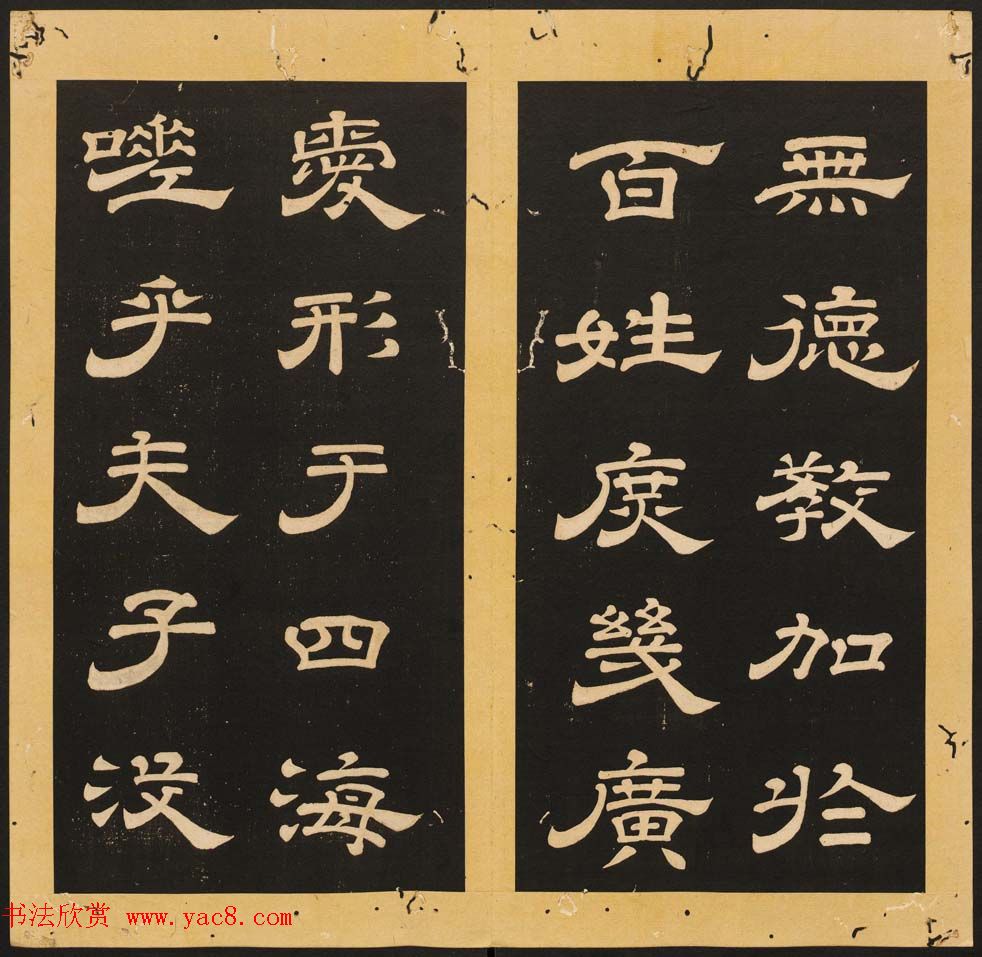 無德教加於
百姓庶幾廣
愛形于四海
嗟乎夫子没
书法欣赏 www.yac8.com